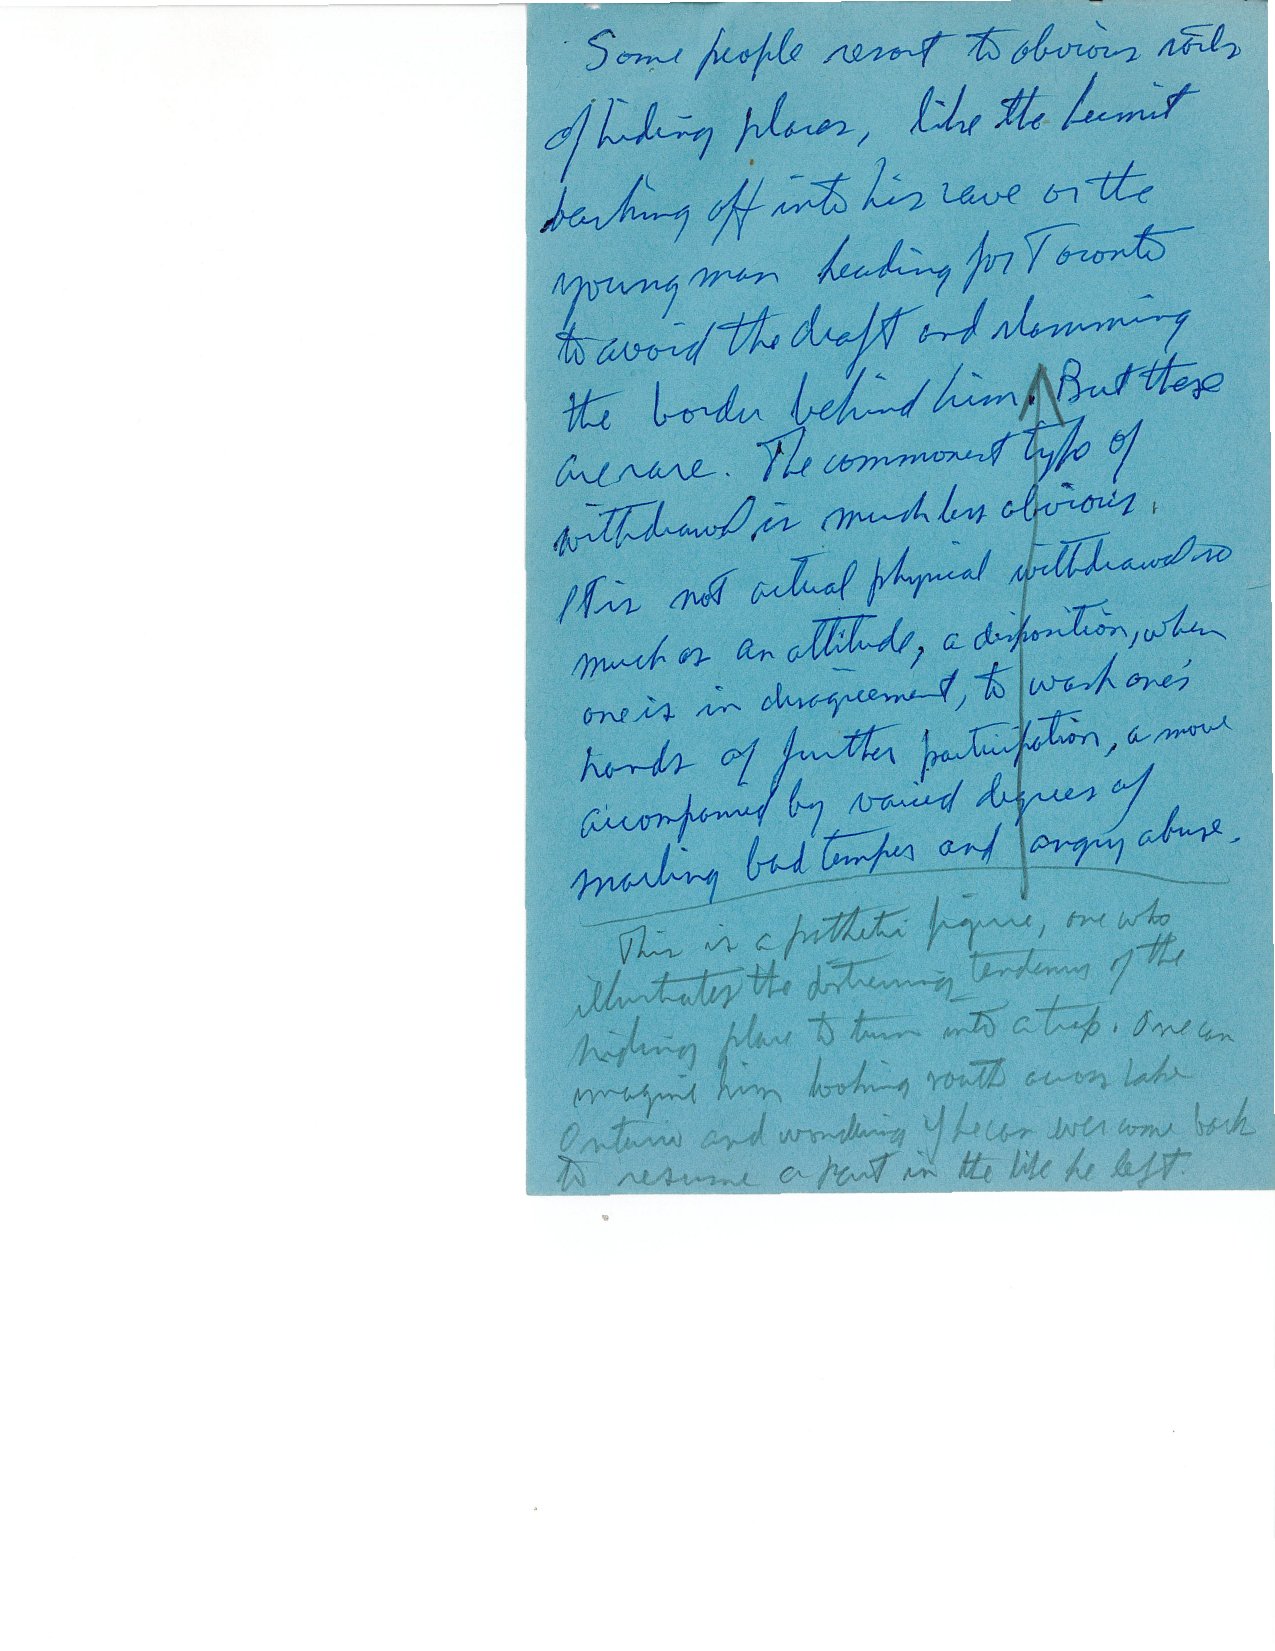 Some people resort to obvious sorts
of hiding places, like the hermit
off into his cave or the
young man heading for Toronto
to avoid the draft and slamming
the border behind him. But these
are rare. The commonest type of
withdrawal is much less obvious.
It is not actual physical withdrawal so
much as an attitude, a disposition, when
one is in disagreement, to wash one's
hands of further participation, a move
accompanied by varied degrees of
snarling bad temper and angry abuse.
This is a pathetic figure, one who
illustrates the distressing tendency of the
hiding place to turn into a trap. One can
imagine him looking south across Lake
Ontario and wondering if he can ever come back
to resume a part in the life he left.